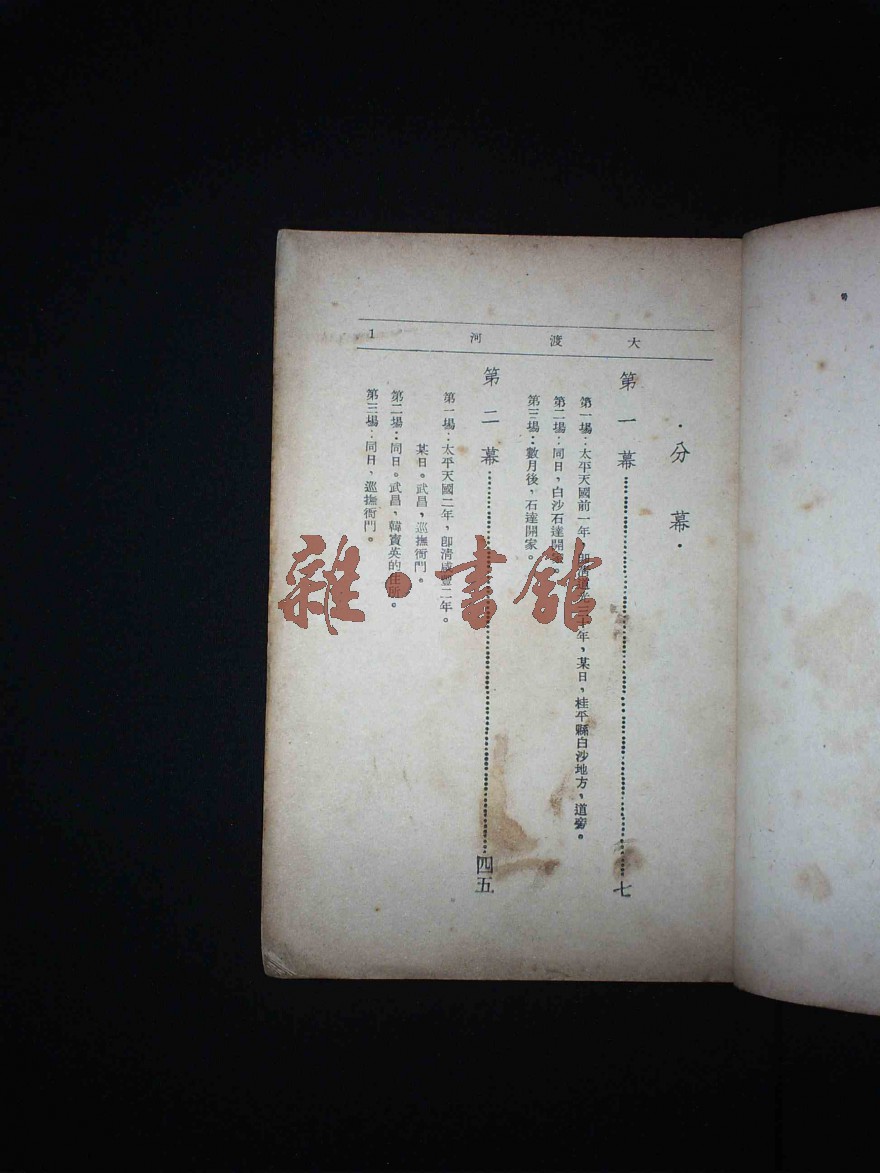 大渡河
1
·分幕·
第一幕……七
第一場：太平天國前一年，即清道光三十年，某日，桂平縣白沙地方，道旁。
第二場：同日，白沙石達開家。
第三場：數月後，石達開家。
第二幕……四五
第一場：太平天國二年，即清咸豐二年。
某日。武昌，巡撫衙門。
第二場：同日。武昌，韓寶英的住所。
第三場：同日，巡撫衙門。
雜·書館